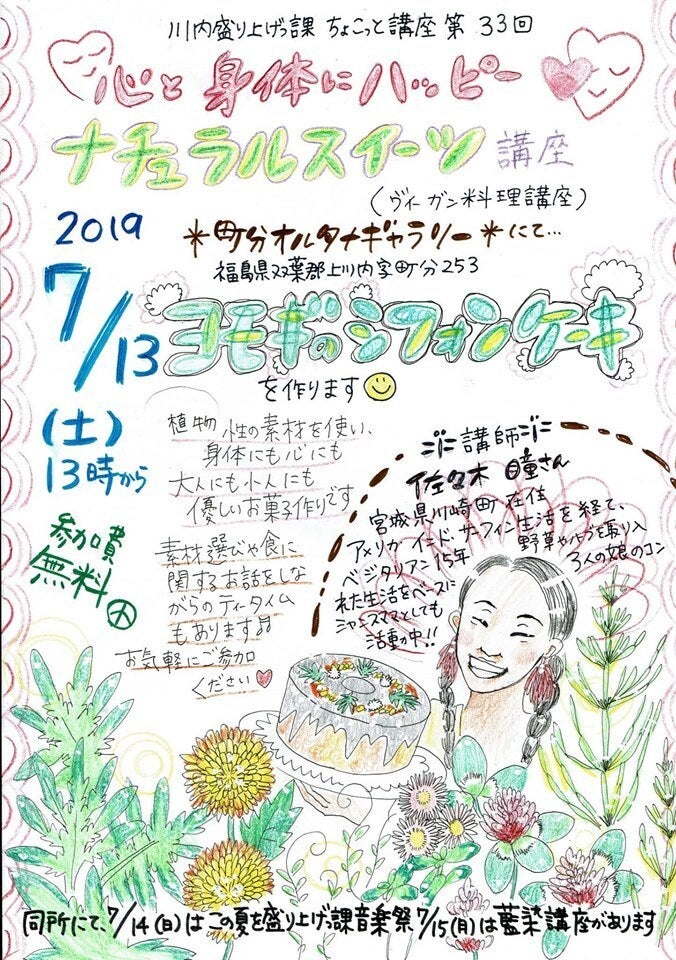 川内盛り上げっ課 ちょこっと講座 第33回
心と身体にハッピー
ナチュラルスイーツ 講座
(ヴィーガン料理講座)
2019
*町分オルタナギャラリー*にて…
福島県双葉郡上川内字町分253
7/13
ヨモギのシフォンケーキ
を作ります
(土)
13時から
参加費
無料
植物性の素材を使い、
身体にも心にも
大人にも小人にも
優しいお菓子作りです
素材選びや食に
関するお話をしな
がらのティータイム
もあります♫
お気軽にご参加
ください♡
講師
佐々木 瞳さん
宮城県川崎町在住
アメリカ・インド・サーフィン生活を経て、
ベジタリアン15年 野草やハーブを取り入
れた生活をベースに 3人の娘のコン
シャスママとしても
活動中!!
同所にて、7/14(日)はこの夏を盛り上げっ課音楽祭 7/15(月)は藍染講座があります